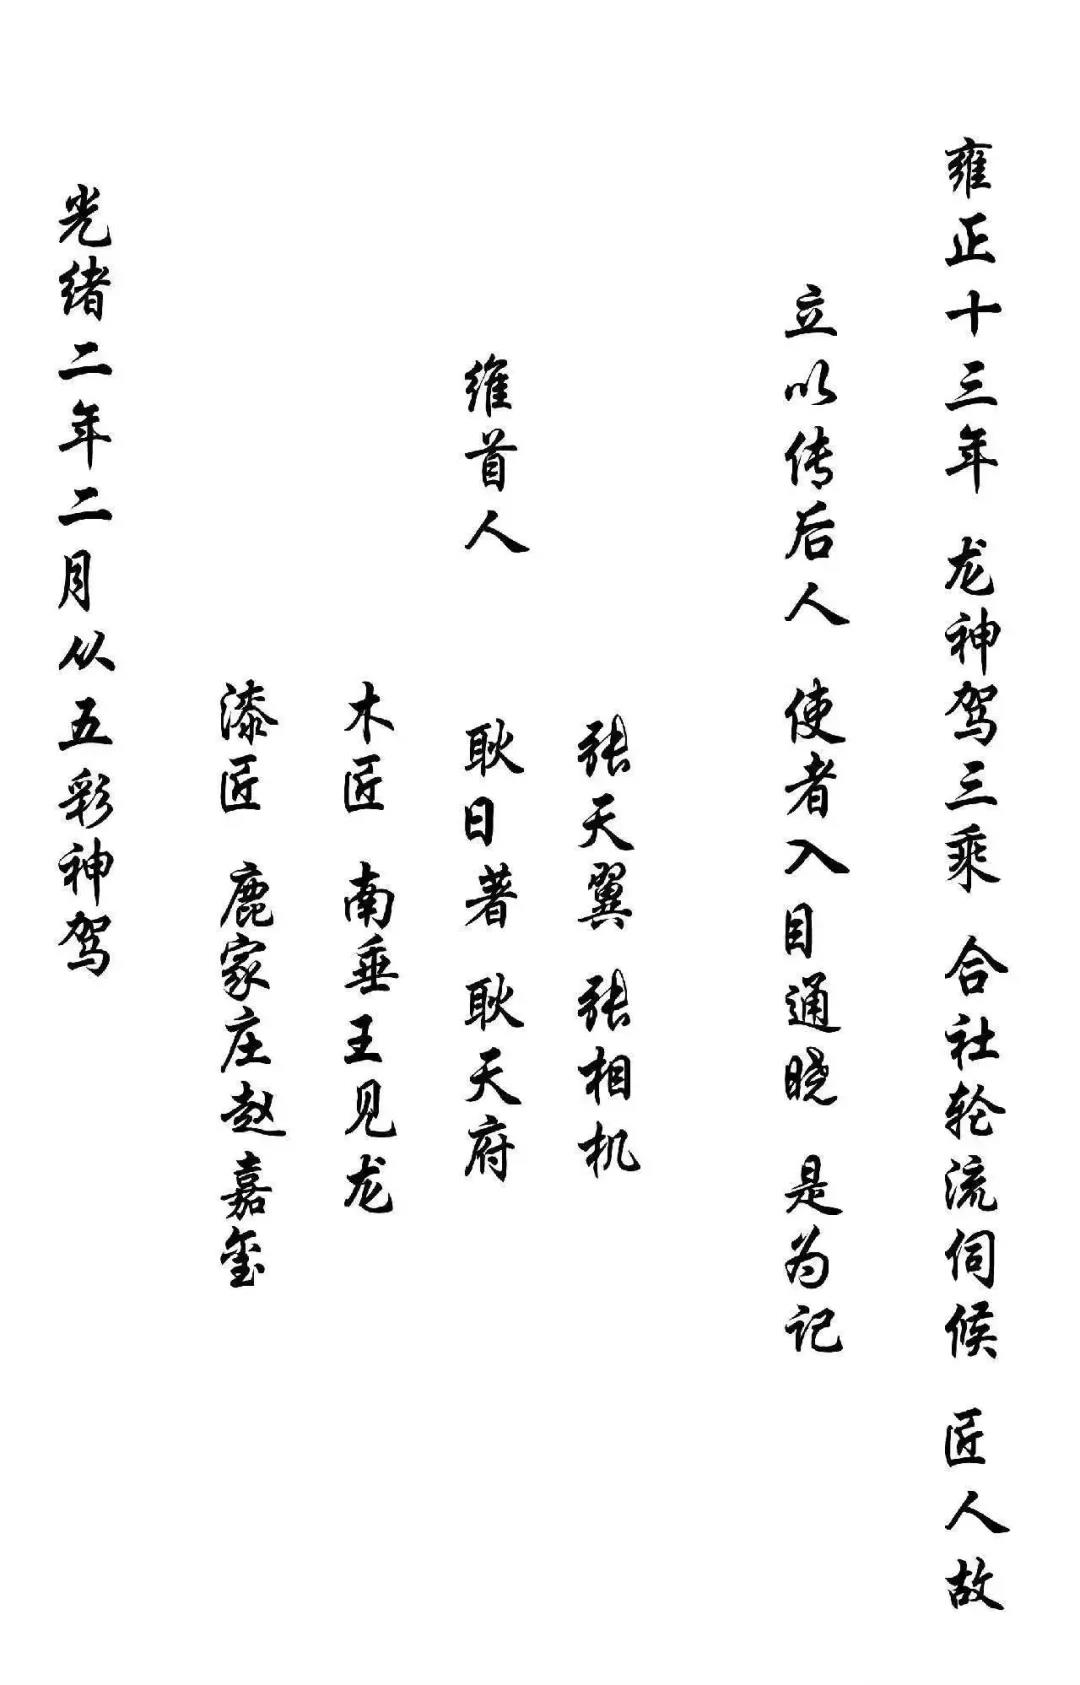 雍正十三年 龙神驾三乘 合社轮流伺候 匠人故
立以传后人 使者入目通晓 是为记
张天翼 张相机
维首人 耿日著 耿天府
木匠 南垂王见龙
漆匠 鹿家庄赵嘉玺
光绪二年二月从五彩神驾